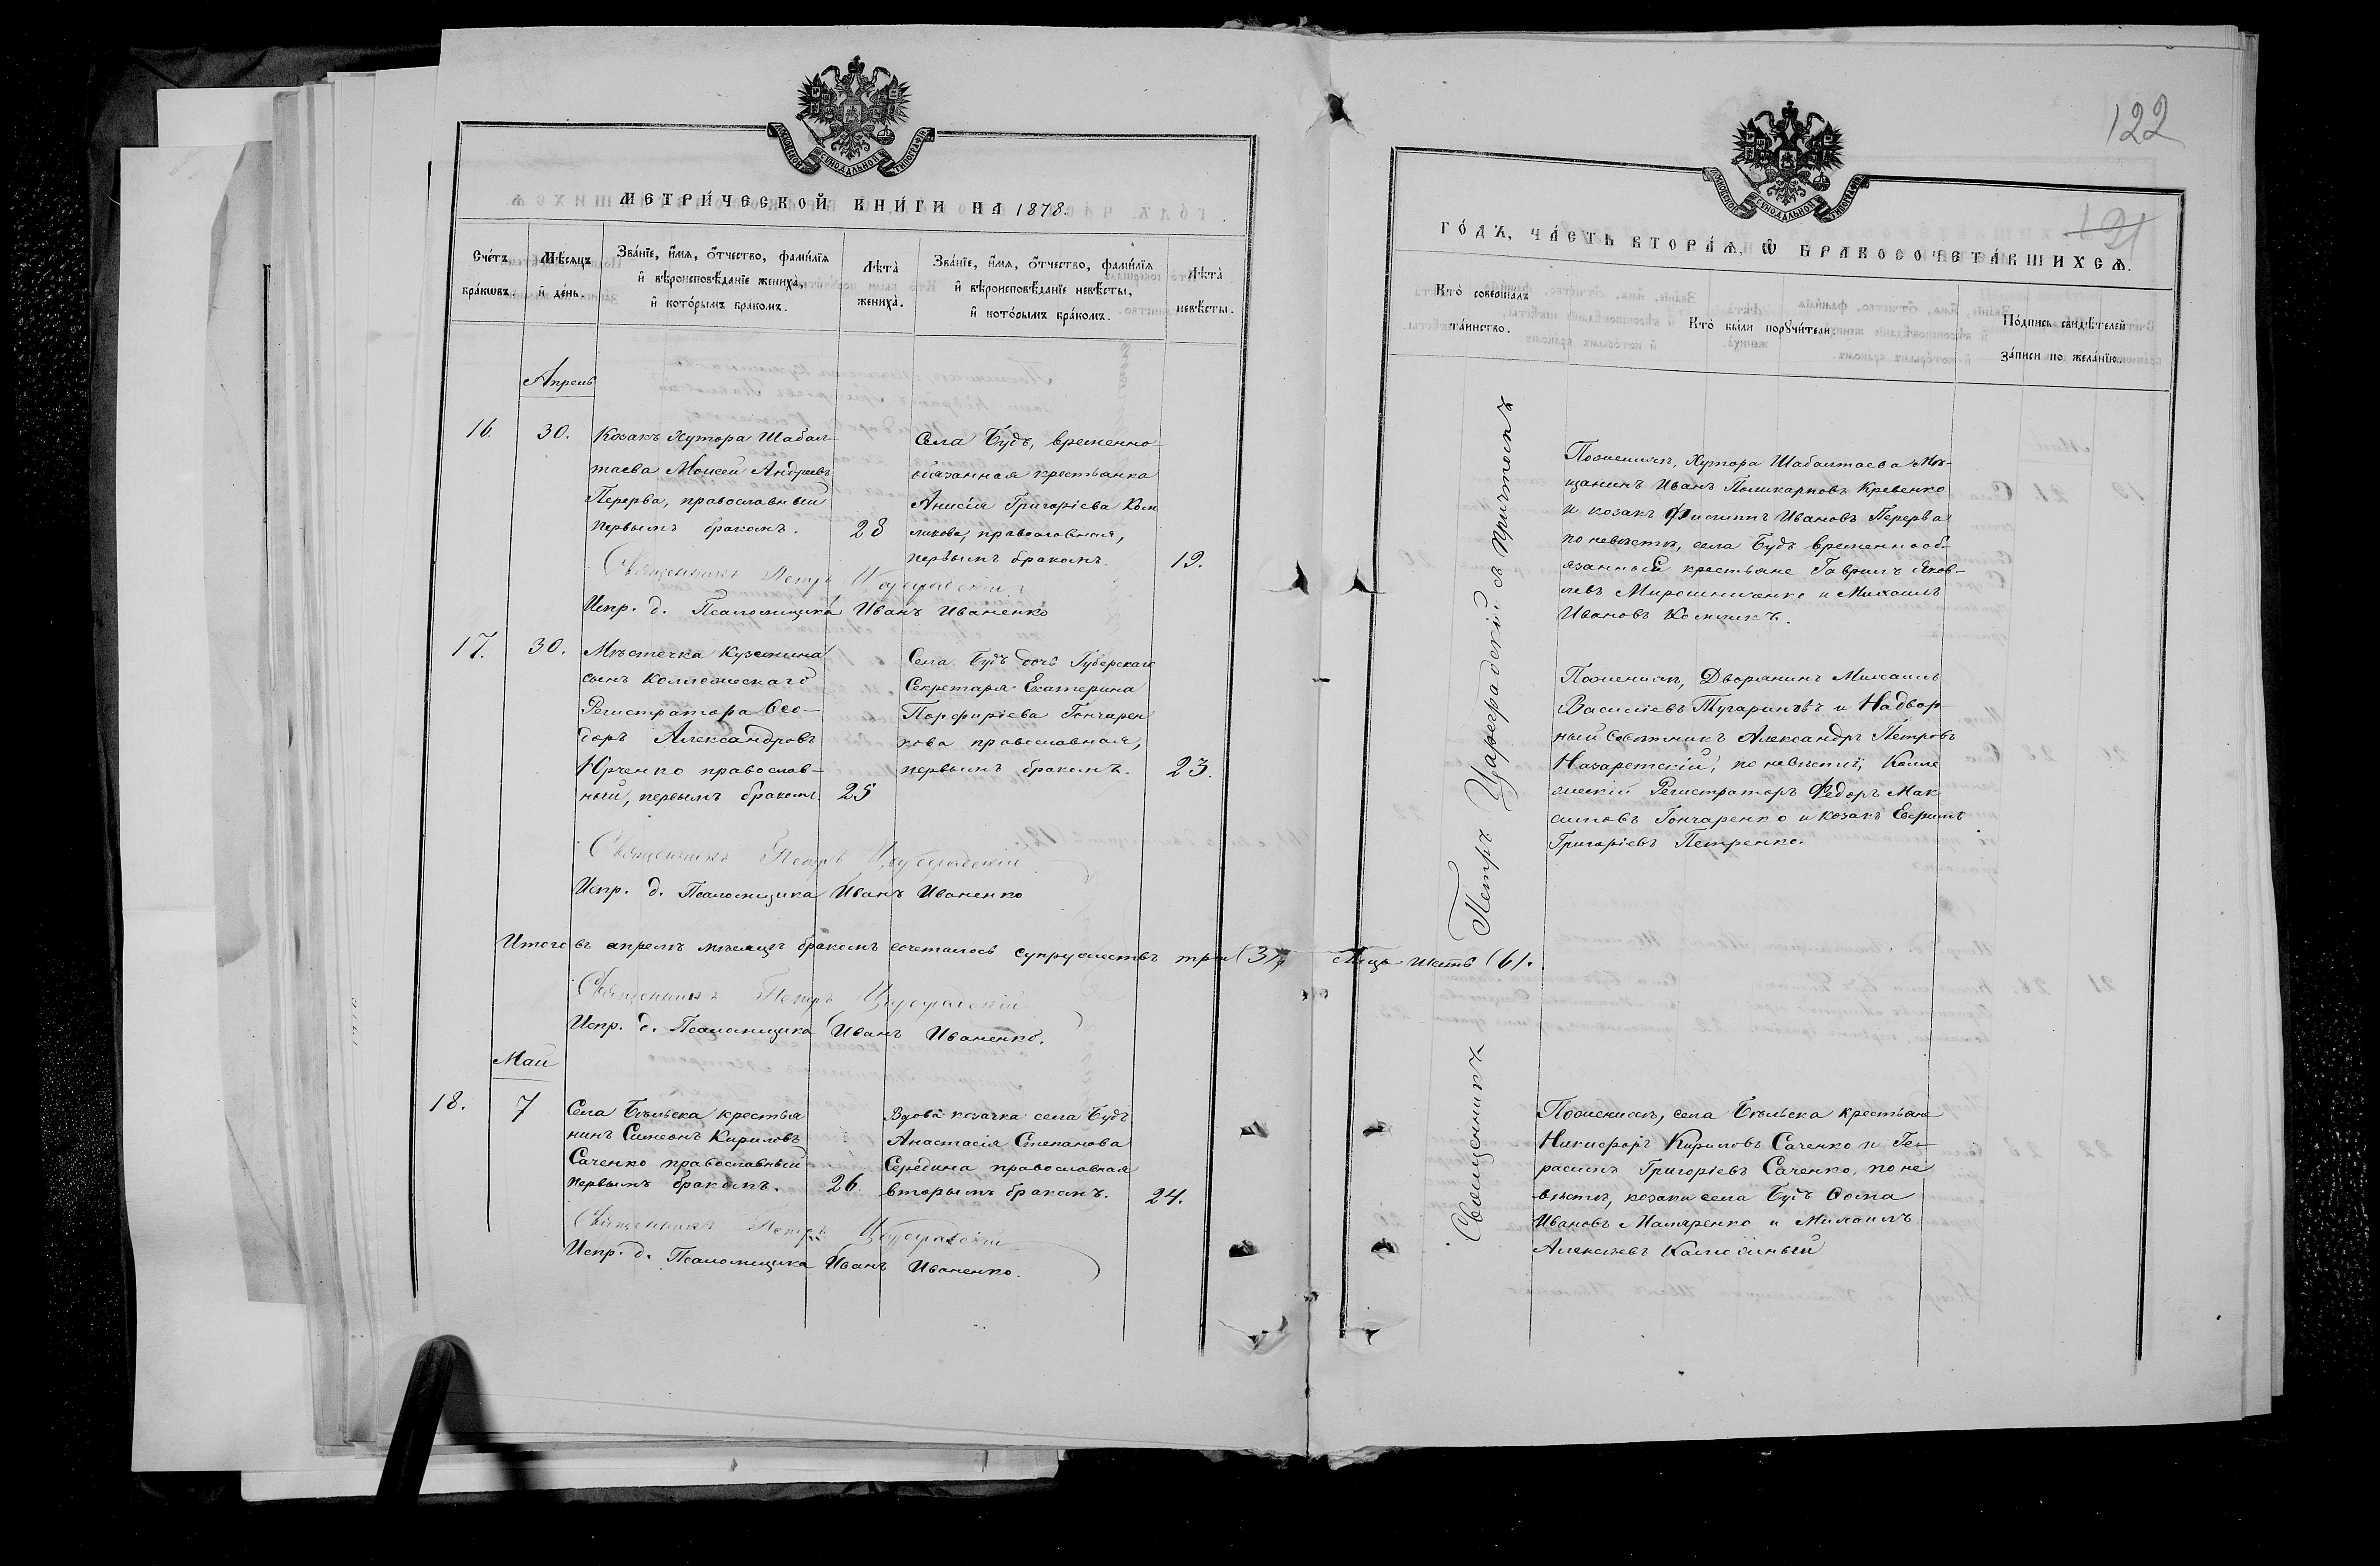 МОСКОВСКОЙ СѴНОДАЛЬНОЙ ТИПОГРАФІИ
МЕТРИ́ЧЕСКОЙ КНИ́ГИ НА 1878.
Сче́тъ бра́кѡвъ.
Мѣ́сяцъ и҆ де́нь.
Зва́нїе, и҆́мѧ, ѻ҆́тчество, фамѝлїѧ
и҆ вѣроисповѣ́данїе жениха̀,
и҆ кото́рымъ бра́комъ.
Лѣта̀ жениха̀.
Зва́нїе, и҆́мѧ, ѻ҆́тчество, фамѝлїѧ
и҆ вѣроисповѣ́данїе невѣ́сты,
и҆ кото́рымъ бра́комъ.
Лѣта̀ невѣ́сты.
Апрель
16.
30.
Козакъ Хутора Шабал-
таева Моисей Андреевъ
Перерва, православный
первымъ бракомъ.
28
Села Будъ, временно-
обязанная крестьянка
Анисія Григоріева Ком
ликова, православная,
первымъ бракомъ.
19.
Священникъ Петръ Цареградскій
Испр. д. Псаломщика Иванъ Иваненко
17.
30.
Мѣстечка Куземина
сынъ Коллежскаго
Регистратора Ѳео-
доръ Александровъ
Юрченко православ-
ный, первымъ бракомъ.
25
Села Будъ дочь Губерскаго
Секретаря Екатерина
Порфиріева Гончарен
кова православная,
первымъ бракомъ.
23.
Священникъ Петръ Цареградскій
Испр. д. Псаломщика Иванъ Иваненко
Итого въ апрелѣ мѣсяцѣ бракомъ сочеталось супружествъ три (3), Лицъ шесть (6).
Священникъ Петръ Цареградскій
Испр. д. Псаломщика Иванъ Иваненко.
Май
18.
7
Села Бѣльска крестья
нинъ Симеонъ Кириловъ
Саченко православный
первымъ бракомъ.
26.
Вдова козачка села Будъ
Анастасія Степанова
Середина православная
вторымъ бракомъ.
24.
Священникъ Петръ Цареградскій
Испр. д. Псаломщика Иванъ Иваненко.
122
121
МОСКОВСКОЙ СѴНОДАЛЬНОЙ ТИПОГРАФІИ
ГО́ДЪ, ЧА́СТЬ ВТОРА́Ѧ, Ѡ҆ БРАКОСОЧЕТА́ВШИХСѦ.
Кто̀ соверша́лъ
та́инство.
Кто̀ бы́ли порꙋчи́тели.
По́дпись свидѣ́телей
за́писи по жела́нїю.
Священникъ Петръ Цареградскій съ причтомъ
По женихѣ, Хутора Шабалтаева Мѣ-
щанинъ Иванъ Поликарповъ Кревенко
и козакъ Филиппъ Ивановъ Перерва
по невѣстѣ, села Будъ временнооб-
язанный крестьяне Гавриилъ Яков-
левъ Мирошниченко и Михаилъ
Ивановъ Комликъ.
По женихѣ, Дворянинъ Михаилъ
Василіевъ Тугариновъ и Надвор-
ный Совѣтникъ Александръ Петровъ
Назаретскій, по невѣстѣ, Колле
жскій Регистраторъ Ѳедоръ Мак
симовъ Гончаренко и козакъ Евфимъ
Григоріевъ Петренко.
По женихѣ, села Бѣльска крестьяне
Никифоръ Кириловъ Саченко и Ге-
расимъ Григоріевъ Саченко, по не
вѣстѣ, козаки села Будъ Ѳома
Ивановъ Маляренко и Михаилъ
Алексѣевъ